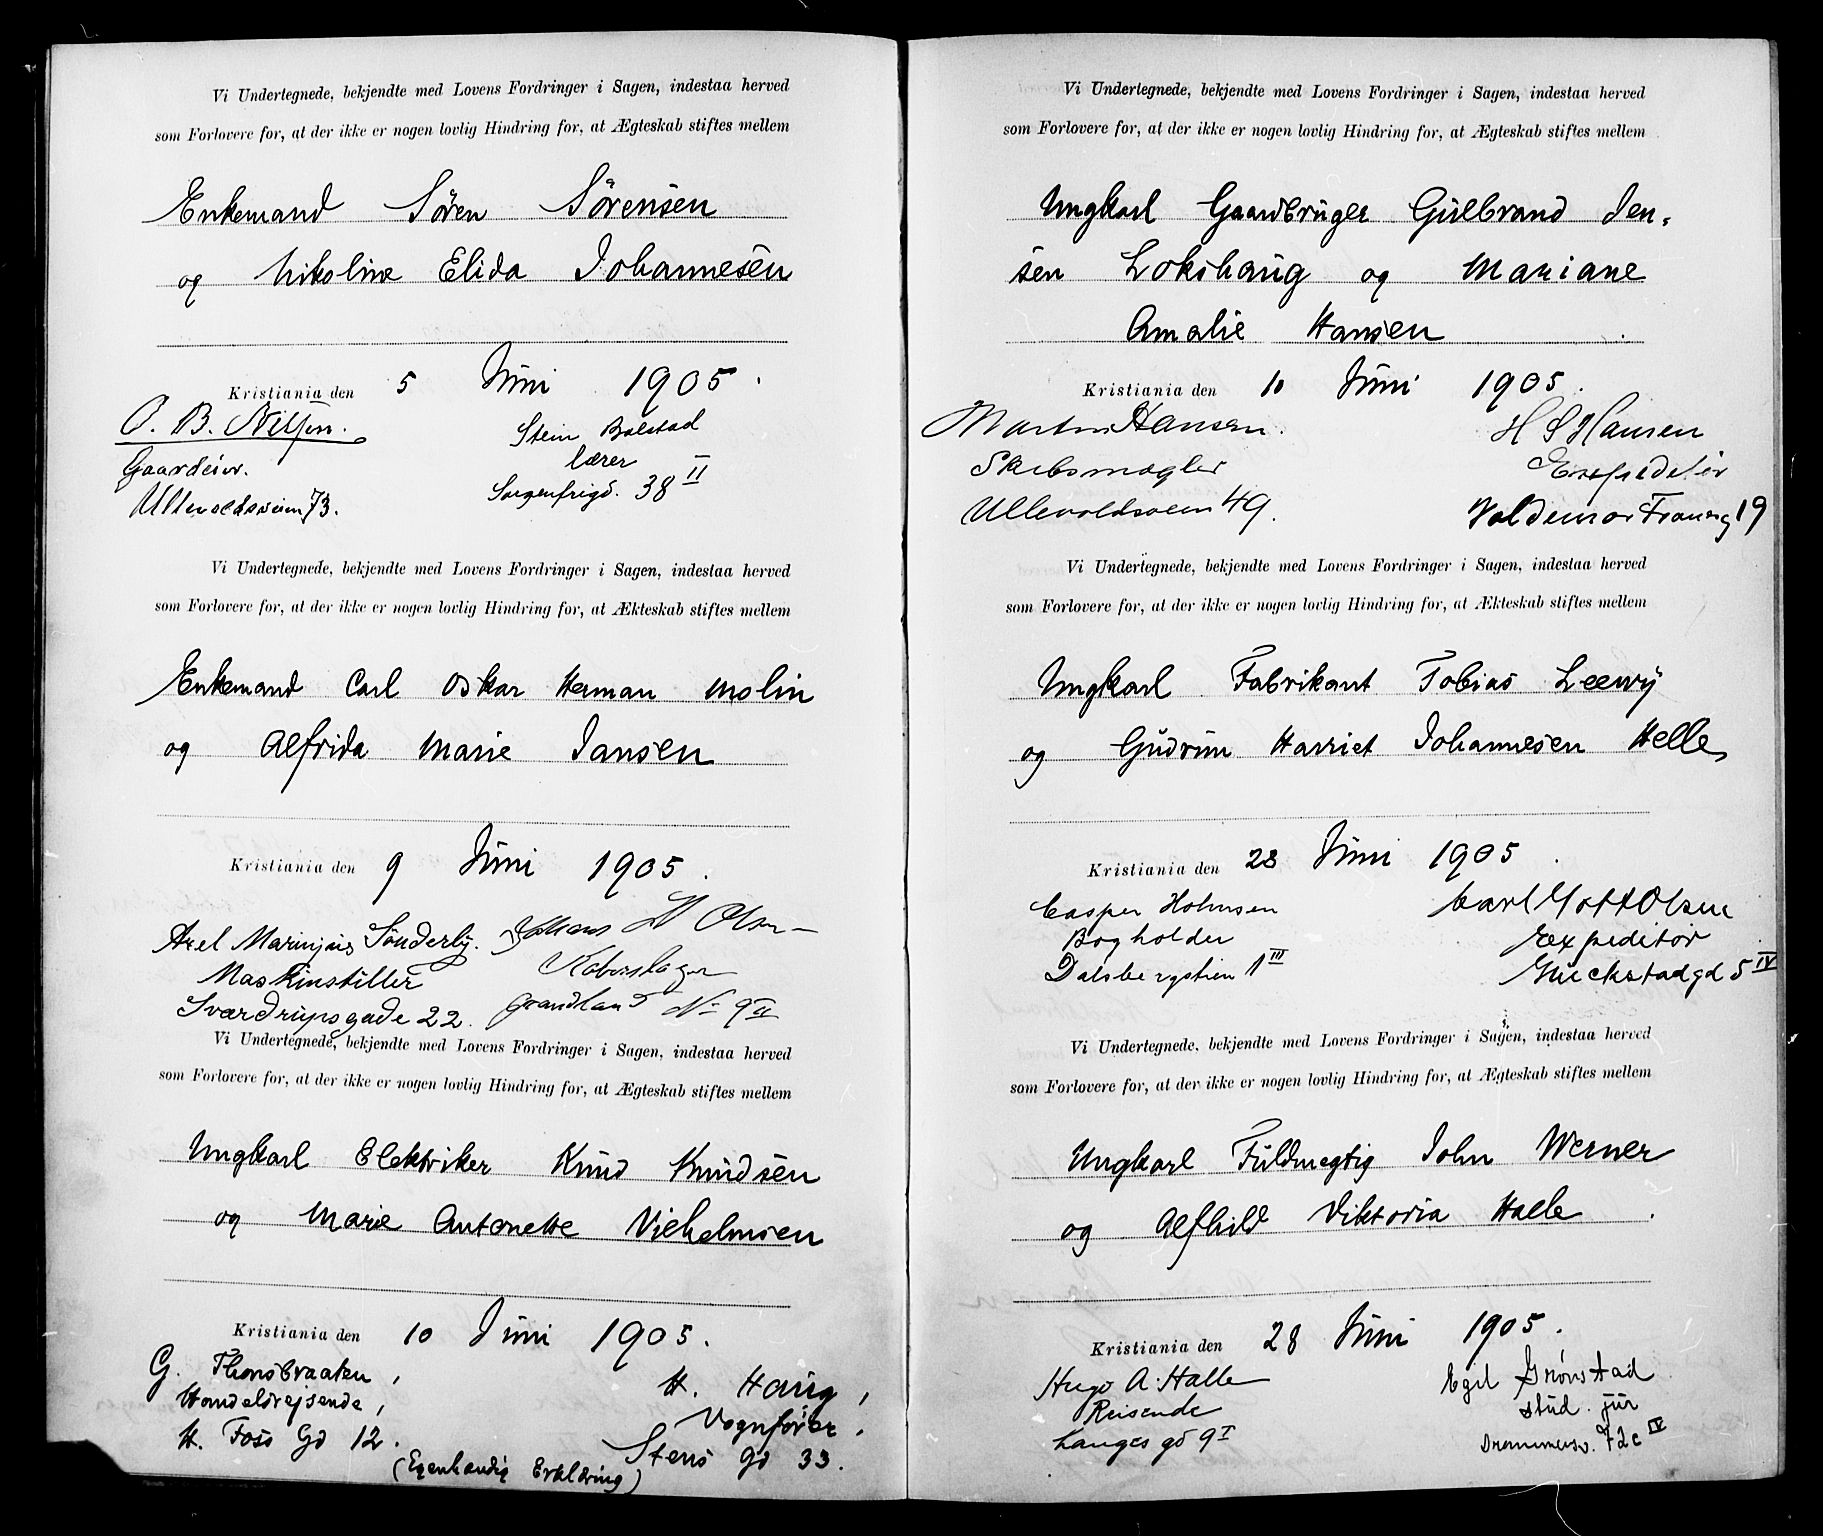 Vi Undertegnede, bekjendte med Lovens Fordringer i Sagen, indestaa herved
som Forlovere for, at der ikke er nogen lovlig Hindring for, at Ægteskab stiftes mellem
Enkemand Sören Sörensen
og Nikoline Elida Johannesen
Kristiania den 5 Juni 1905.
O. B. Nilsen.
Gaardeier.
Ullevoldsveien 73.
Stein Bolstad
lærer
Sorgenfrigd. 38 II
Vi Undertegnede, bekjendte med Lovens Fordringer i Sagen, indestaa herved
som Forlovere for, at der ikke er nogen lovlig Hindring for, at Ækteskab stiftes mellem
Enkemand Carl Oskar Herman Molin
og Alfrida Marie Jansen
Kristiania den 9 Juni 1905.
Axel Marinius Sönderby.
Maskinstiller
Sværdrupsgade 22.
Johans H Olsen
Kobberslager
Grændland No 9 II
Vi Undertegnede, bekjendte med Lovens Fordringer i Sagen, indestaa herved
som Forlovere for, at der ikke er nogen lovlig Hindring for, at Ægteskab stiftes mellem
Ungkarl Elektriker Knud Knudsen
og Marie Antonette Vilhelmsen
Kristiania den 10 Juni 1905.
G. Thonsbraaten,
Handelsrejsende,
H. Foss Gd 12.
H. Haug,
Vognfører,
Stens Gd 33.
(Egenhandig Erklæring)
Vi Undertegnede, bekjendte med Lovens Fordringer i Sagen, indestaa herved
som Forlovere for, at der ikke er nogen lovlig Hindring for, at Ægteskab stiftes mellem
Ungkarl Gaardbruger Gulbrand Jen-
sen Lokshaug og Mariane
Amalie Hansen
Kristiania den 10 Juni 1905.
Martin Hansen.
Skibsmægler
Ullevoldsveien 49.
H S Hansen
Expeditør
Valdemar Thranesg 19
Vi Undertegnede, bekjendte med Lovens Fordringer i Sagen, indestaa herved
som Forlovere for, at der ikke er nogen lovlig Hindring for, at Ækteskab stiftes mellem
Ungkarl Fabrikant Tobias Leewy
og Gudrun Harriet Johannesen Helle
Kristiania den 28 Juni 1905.
Casper Holmsen
Bogholder
Dalsbergstien 1 III
Carl Gott Olsen
Expeditör
Glückstadgd 5 IV
Vi Undertegnede, bekjendte med Lovens Fordringer i Sagen, indestaa herved
som Forlovere for, at der ikke er nogen lovlig Hindring for, at Ægteskab stiftes mellem
Ungkarl Fuldmegtig John Werner
og Alfhild Viktoria Halle
Kristiania den 28 Juni 1905.
Hugo A. Halle
Reisende
Langes gd 9 I
Egil Grønstad
stud. jur
Drammensv. 72c IV